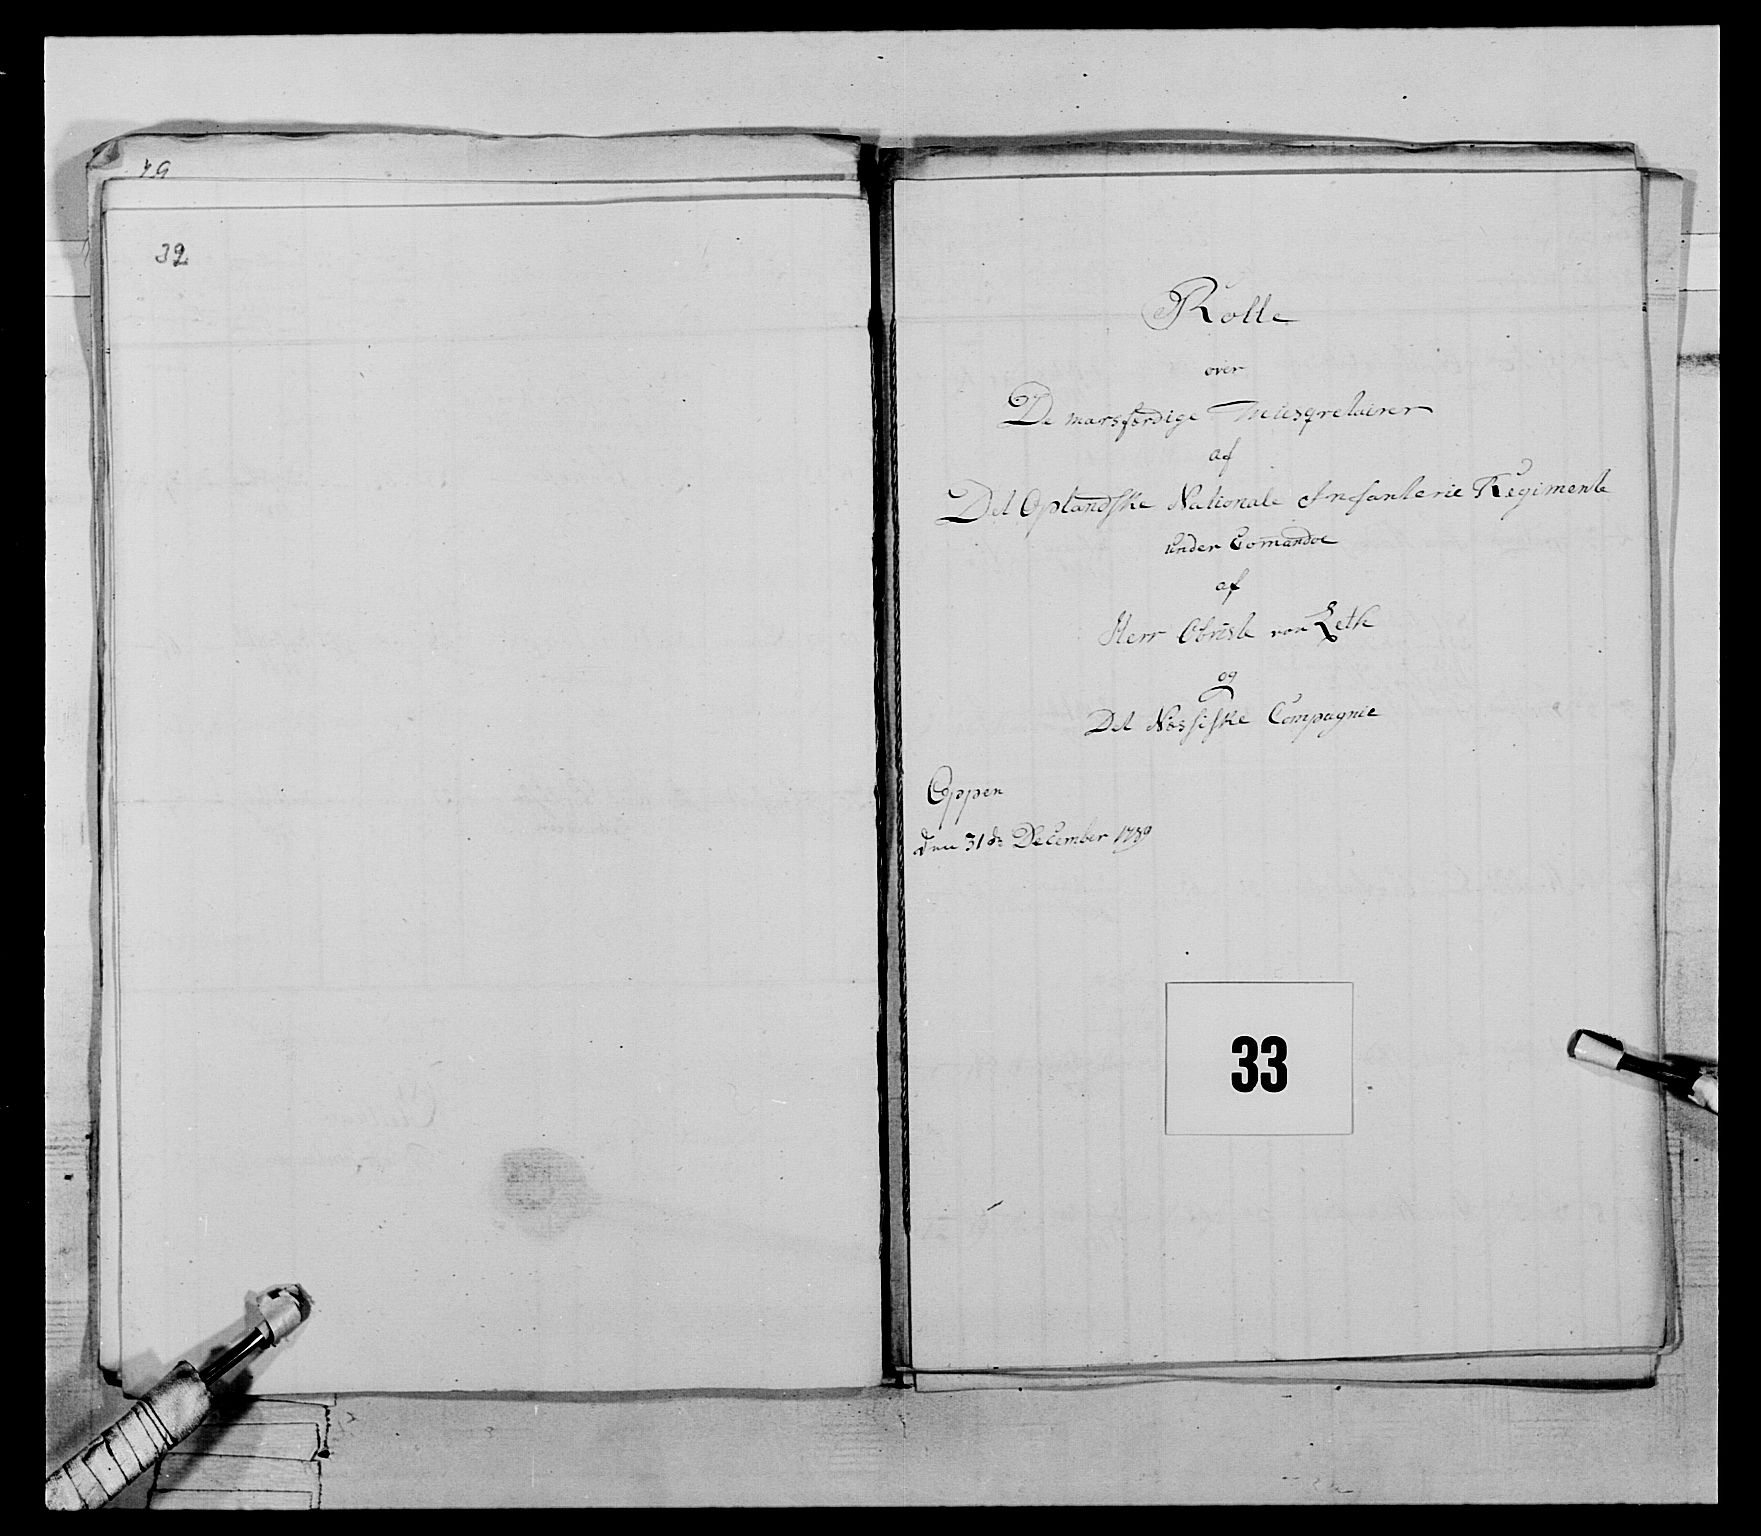 32
Rolle
over
De marsfærdige Musqveteirer
af
Det Oplandske Nationale Infanterie Regimente
under Comandoe
af
Herr Obriste von Zeth
og
Det Næssiske Compagnie
Oppen
den 31de December 1789
33